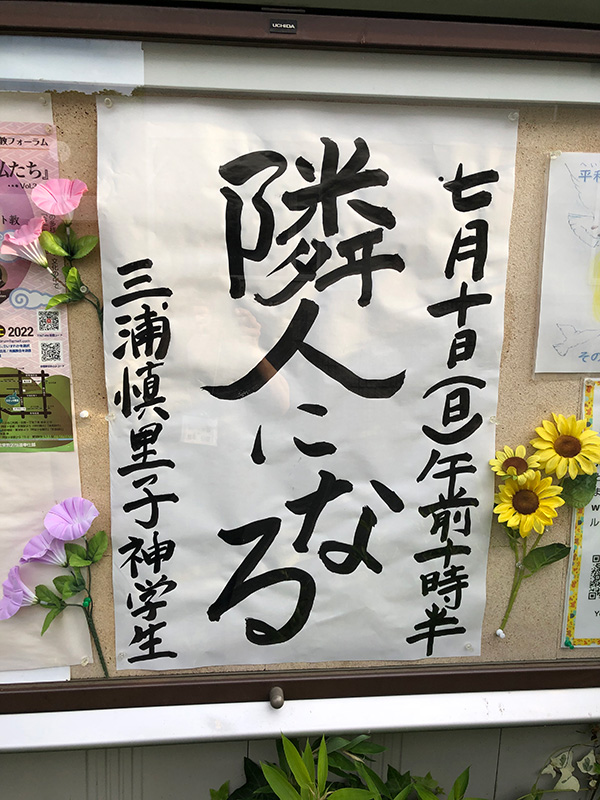 UCHIDA
七月十日(日)午前十時半
隣人になる
三浦慎里子神学生
教フォーラム
ム たち』
Vol.2
ト教
2022
平和
その